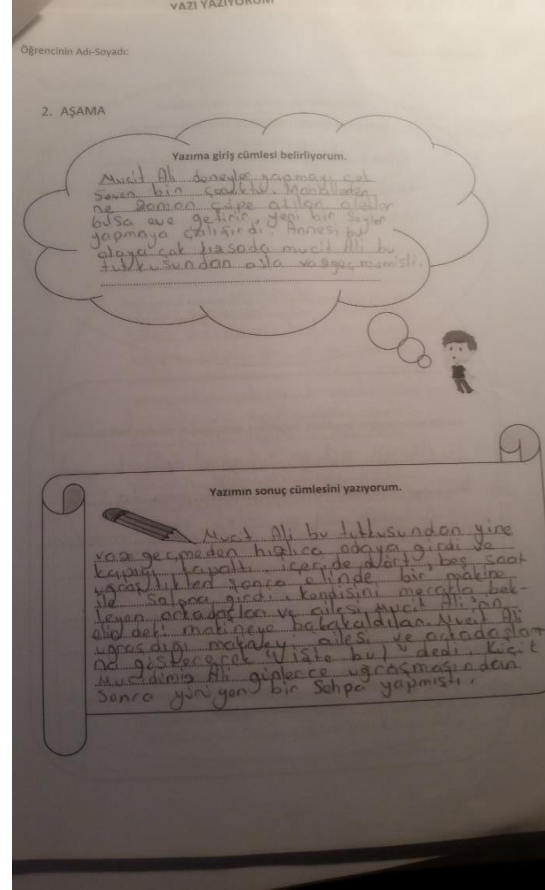 YAZI YAZIYORUM
Öğrencinin Adı-Soyadı:
2. AŞAMA
Yazıma giriş cümlesi belirliyorum.
Mucit Ali deneyler yapmayı çok
Seven bir çocuktu. Mahalleden
ne zaman çöpe atılan aletler
bulsa eve getirir, yeni bir şeyler
yapmaya çalışırdı. Annesi bu
olaya çok kızsada mucit Ali bu
tutkusundan asla vazgeçmemişti.
Yazımın sonuç cümlesini yazıyorum.
Mucit Ali bu tutkusundan yine
vazgeçmeden hızlıca odaya girdi ve
kapıyı kapattı, içeride dört, beş saat
uğraştıktan sonra elinde bir makine
ile Salona girdi. Kendisini merakla bek-
leyen arkadaşları ve ailesi Mucit Ali'nin
elindeki makineye bakakaldılar. Mucit Ali
uğraştığı makineyi ailesi ve arkadaşları
na göstererek "işte bu!" dedi. Küçük
Mucidimiz Ali günlerce uğraşmasından
Sonra yürüyen bir Sehpa yapmıştı.